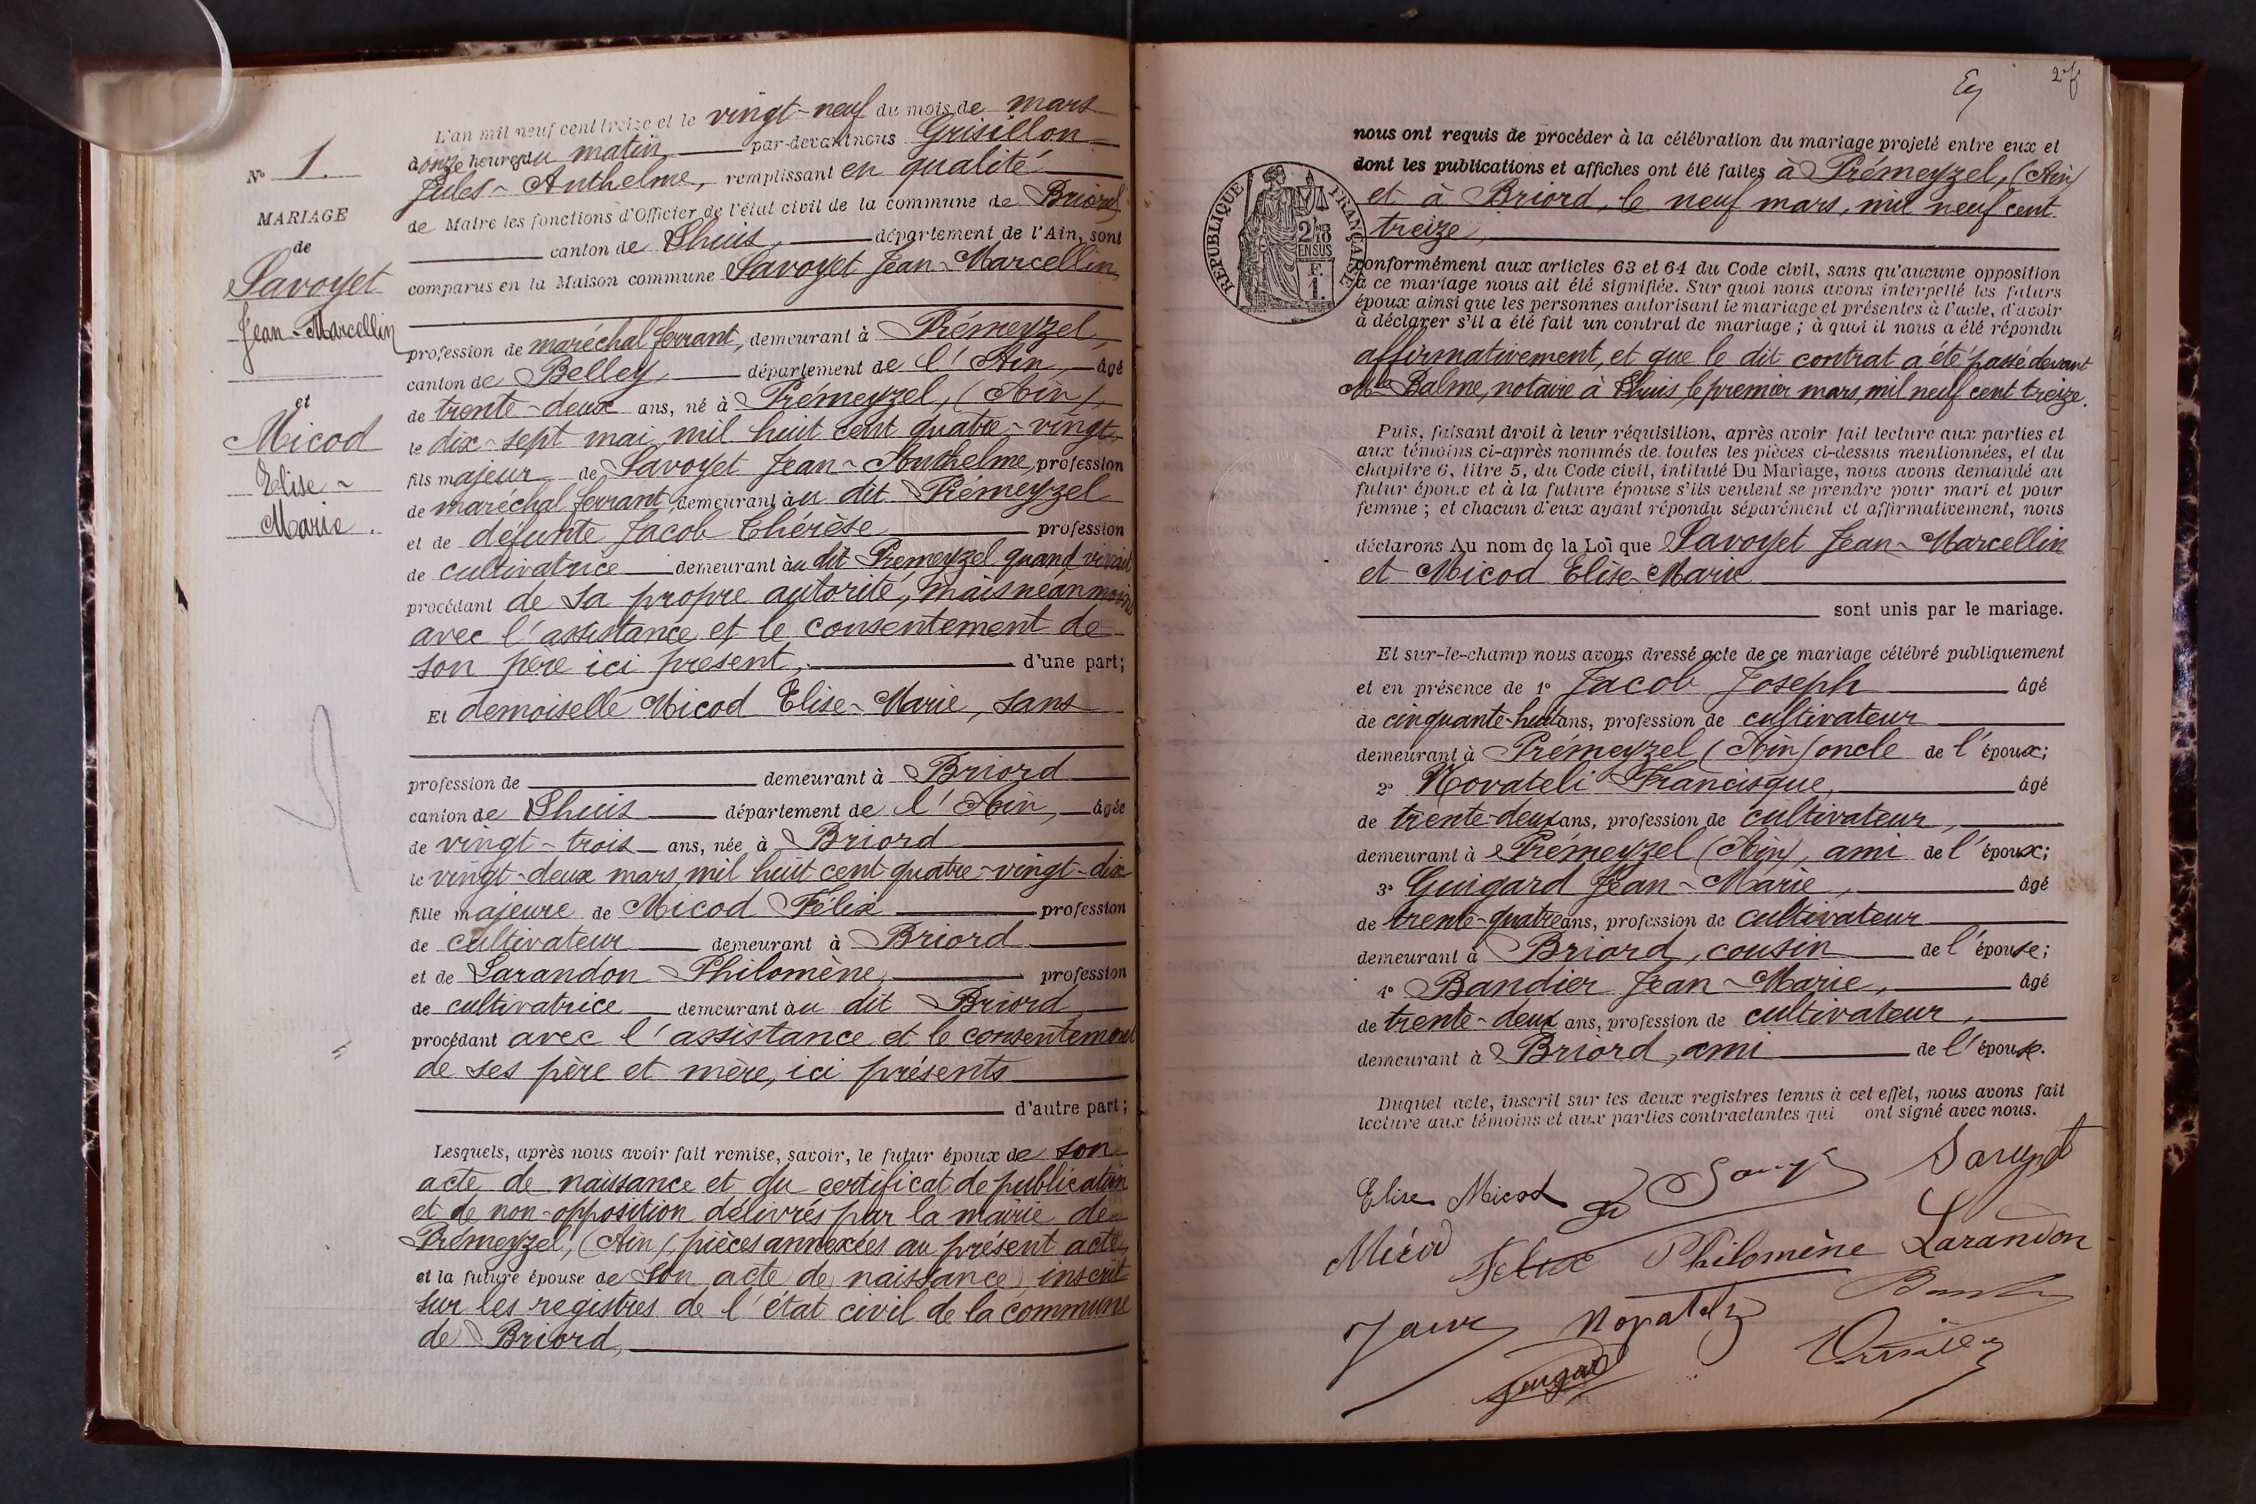 N° 1.
MARIAGE
de
Savoyet
Jean-Marcellin
et
Micod
Elise-
Marie.
L'an mil neuf cent treize et le vingt-neuf du mois de mars
à onze heures du matin par-devant nous Grisillon
Jules-Anthelme, remplissant en qualité
de Maire les fonctions d'Officier de l'état civil de la commune de Briord
canton de Lhuis, département de l'Ain, sont
comparus en la Maison commune Savoyet Jean-Marcellin
profession de maréchal ferrant, demeurant à Prémeyzel,
canton de Belley, département de l'Ain, âgé
de trente-deux ans, né à Prémeyzel, (Ain),
le dix-sept mai mil huit cent quatre-vingt
fils majeur de Savoyet Jean-Anthelme, profession
de maréchal ferrant demeurant au dit Prémeyzel
et de défunte Jacob Thérèse profession
de cultivatrice demeurant au dit Prémeyzel quand vivait
procédant de sa propre autorité, mais néanmoins
avec l'assistance et le consentement de
son père ici présent, d'une part;
Et demoiselle Micod Elise-Marie, sans
profession de demeurant à Briord
canton de Lhuis département de l'Ain, âgée
de vingt-trois ans, née à Briord
le vingt-deux mars mil huit cent quatre-vingt-dix
fille majeure de Micod Félix profession
de cultivateur demeurant à Briord
et de Larandon Philomène, profession
de cultivatrice demeurant au dit Briord
procédant avec l'assistance et le consentement
de ses père et mère, ici présents
d'autre part;
Lesquels, après nous avoir fait remise, savoir, le futur époux de son
acte de naissance et du certificat de publication
et de non-opposition délivrés par la mairie de
Prémeyzel, (Ain), pièces annexées au présent acte
et la future épouse de son acte de naissance, inscrit
sur les registres de l'état civil de la commune
de Briord,
27
nous ont requis de procéder à la célébration du mariage projeté entre eux et
dont les publications et affiches ont été faites à Prémeyzel, (Ain)
et à Briord, le neuf mars, mil neuf cent
treize,
RÉPUBLIQUE FRANÇAISE
2/10
EN SUS
F.
1.
conformément aux articles 63 et 64 du Code civil, sans qu'aucune opposition
à ce mariage nous ait été signifiée. Sur quoi nous avons interpellé les futurs
époux ainsi que les personnes autorisant le mariage et présentes à l'acte, d'avoir
à déclarer s'il a été fait un contrat de mariage; à quoi il nous a été répondu
affirmativement, et que le dit contrat a été passé devant
Balme, notaire à Lhuis, le premier mars, mil neuf cent treize.
Puis, faisant droit à leur réquisition, après avoir fait lecture aux parties et
aux témoins ci-après nommés de toutes les pièces ci-dessus mentionnées, et du
chapitre 6, titre 5, du Code civil, intitulé Du Mariage, nous avons demandé au
futur époux et à la future épouse s'ils veulent se prendre pour mari et pour
femme; et chacun d'eux ayant répondu séparément et affirmativement, nous
déclarons Au nom de la Loi que Savoyet Jean-Marcellin
et Micod Elise-Marie
sont unis par le mariage.
Et sur-le-champ nous avons dressé acte de ce mariage célébré publiquement
et en présence de 1° Jacob Joseph âgé
de cinquante-huit ans, profession de cultivateur
demeurant à Prémeyzel (Ain) oncle de l'époux;
2° Novateli Francisque, âgé
de trente-deux ans, profession de cultivateur,
demeurant à Prémeyzel (Ain), ami de l'époux;
3° Guigard Jean-Marie, âgé
de trente-quatre ans, profession de cultivateur
demeurant à Briord, cousin de l'épouse;
4° Bandier Jean-Marie, âgé
de trente-deux ans, profession de cultivateur,
demeurant à Briord, ami de l'épouse.
Duquel acte, inscrit sur les deux registres tenus à cet effet, nous avons fait
lecture aux témoins et aux parties contractantes qui ont signé avec nous.
Elise Micod
Micod Felix Philomène Larandon